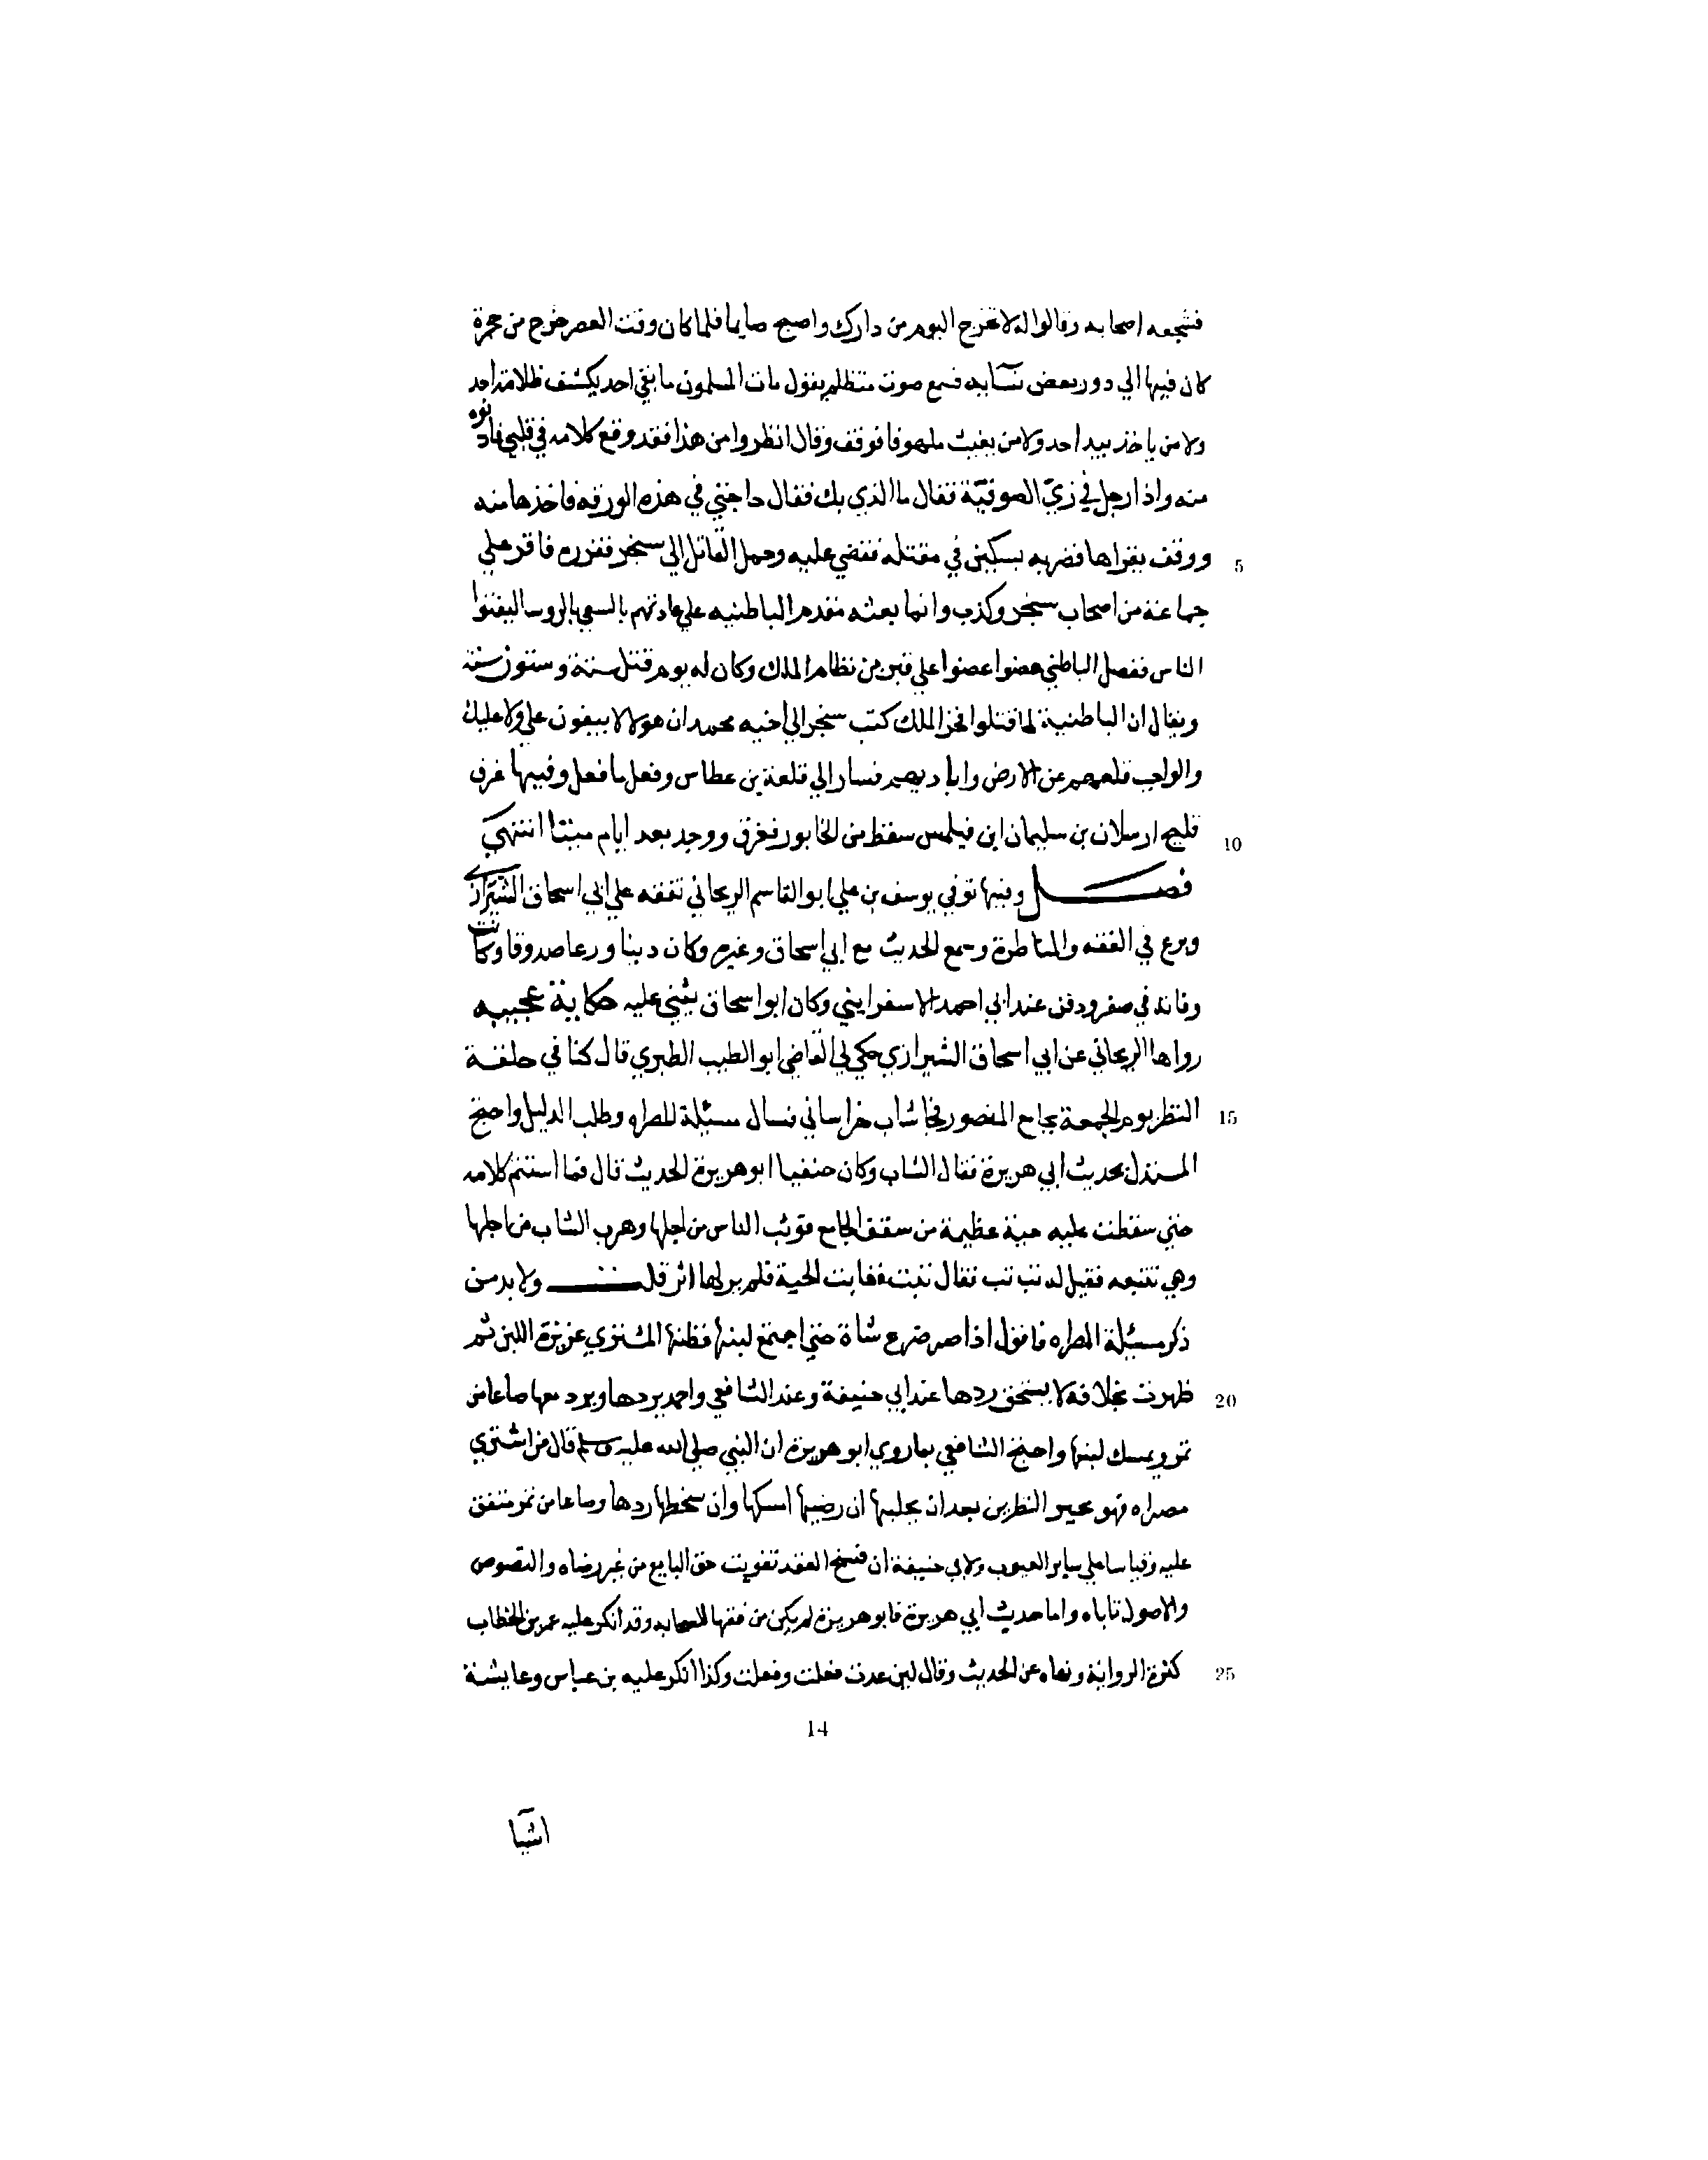 فشجعه اصحابه وقالوا له لا تخرج اليوم من دارك واصبح صايما فلما كان وقت العصر خرج من حجرة
كان فيها الي دور بعض نسآيه فسمع صوت متظلم يقول مات المسلمون ما بقي احد يكشف ظلامة احد
ولا من ياخذ بيد احد ولا من يغيث ملهوفا فوقف وقال انظروا من هذا فقد وقع كلامه في قلبي فادنوه
منه واذا رجل في زيّ الصوفيّة فقال ما الذي بك فقال حاجتي في هذه الورقة فاخذها منه
5 ووقف يقراها فضربه بسكين في مقتله فقضي عليه وحمل القاتل الي سنجر فقرره فاقر علي
جماعة من اصحاب سنجر وكذب وانما بعثه مقدم الباطنيه علي عادتهم بالسعي بالروسا ليفتنوا
الناس ففصل الباطني عضوا عضوا علي قبر بن نظام الملك وكان له يوم قتل ستة وستون سنة
ويقال ان الباطنية لما قتلوا فخر الملك كتب سنجر الي اخيه محمد ان هولا لا يبقون علي ولا عليك
والواجب قلعهم عن الارض وابادتهم فسار الي قلعة بن عطاس وفعل ما فعل وفيها غرق
10 قليج ارسلان بن سليمان ابن قيلمس سقط من الخابور فغرق ووجد بعد ايام ميتا انتهي
فصل وفيها توفي يوسف بن علي ابو القاسم الريحاني تفقه علي ابي اسحاق الشيرازي
وبرع في الفقه والمناظرة وسمع الحديث مع ابي اسحاق وغيره وكان دينا ورعا صدوقا وكانت
وفاته في صفر ودفن عند ابي احمد الاسفرايني وكان ابو اسحاق يثني عليه حكاية عجيبه
رواها الريحاني عن ابي اسحاق الشيرازي حكي لي القاضي ابو الطيب الطبري قال كنا في حلقة
15 النظر يوم الجمعة بجامع المنصور فجا شاب خراساني فسال مسئلة المصراه وطلب الدليل واحتج
المستدل بحديث ابي هريرة فقال الشاب وكان حنفيا ابو هريرة الحديث قال فما استتم كلامه
حتي سقطت عليه حية عظيمة من سقف الجامع فوثب الناس من اجلها وهرب الشاب من اجلها
وهي تتبعه فقيل له تب تب فقال تبت فغابت الحية فلم ير لها اثر قلت ولا بد من
ذكر مسئلة المصراه فانقول اذا صر ضرع شاة حتي اجتمع لبنها فظنها المشتري غزيرة اللبن ثم
20 ظهرت بخلافه لا يستحق ردها عند ابي حنيفة وعند الشافعي واحمد يردها ويرد معها صاعا من
تمر ويمسك لبنها واحتج الشافعي بما روي ابو هريرة ان النبي صلي الله عليه وسلم قال من اشتري
مصراه فهو بخير النظرين بعد ان يحلبها ان رضيها امسكها وان سخطها ردها وصاعا من تمر متفق
عليه وقياسا علي ساير العيوب ولابي حنيفة ان فسخ العقد تفويت حق البايع من غير رضاه والنصوص
والاصول تاباه واما حديث ابي هريرة فابو هريرة لم يكن من فقها الصحابه وقد انكر عليه عمر بن الخطاب
25 كثرة الرواية ونهاه عن الحديث وقال لين عدت فعلت وفعلت وكذا انكر عليه بن عباس وعايشة
14
اشيآ